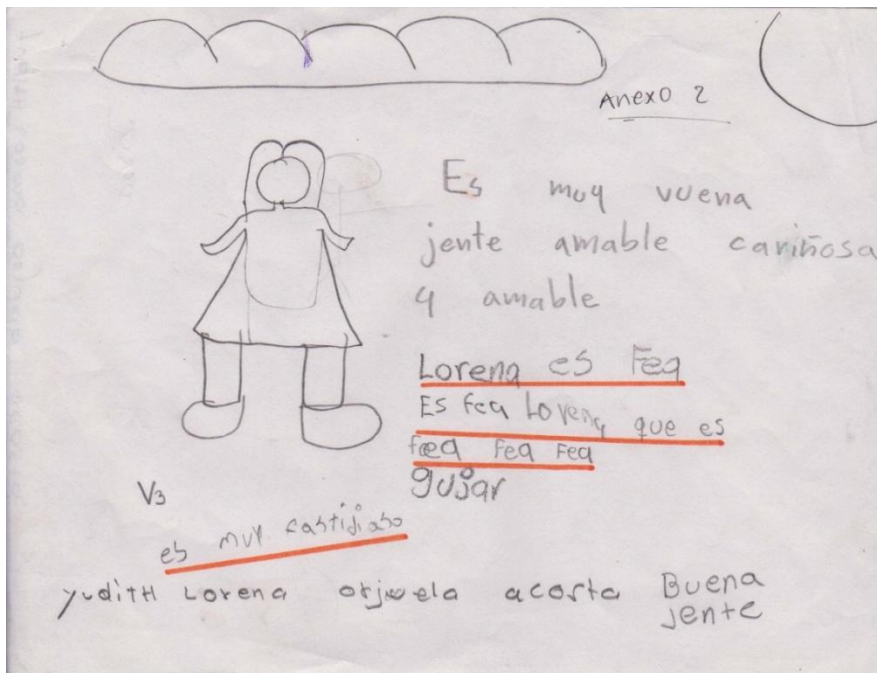 Anexo 2
Es muy vuena
jente amable cariñosa
y amable
Lorena es Fea
Es fea Lorena que es
fea Fea Fea
gujar
V3
es muy fastijiaso
yudith Lorena orjuela acosta Buena
jente